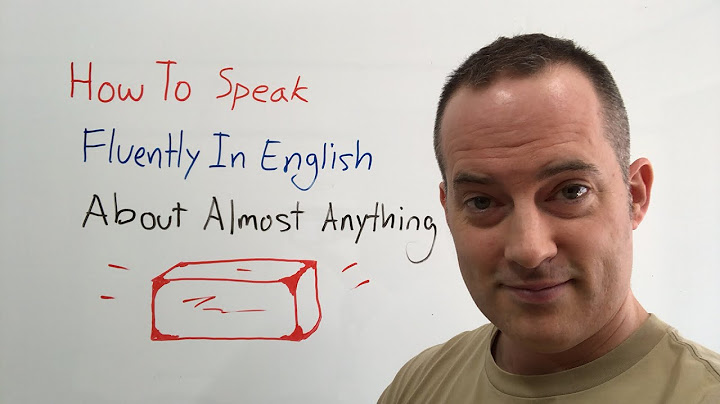 How To Speak
Fluently In English
About Almost Anything